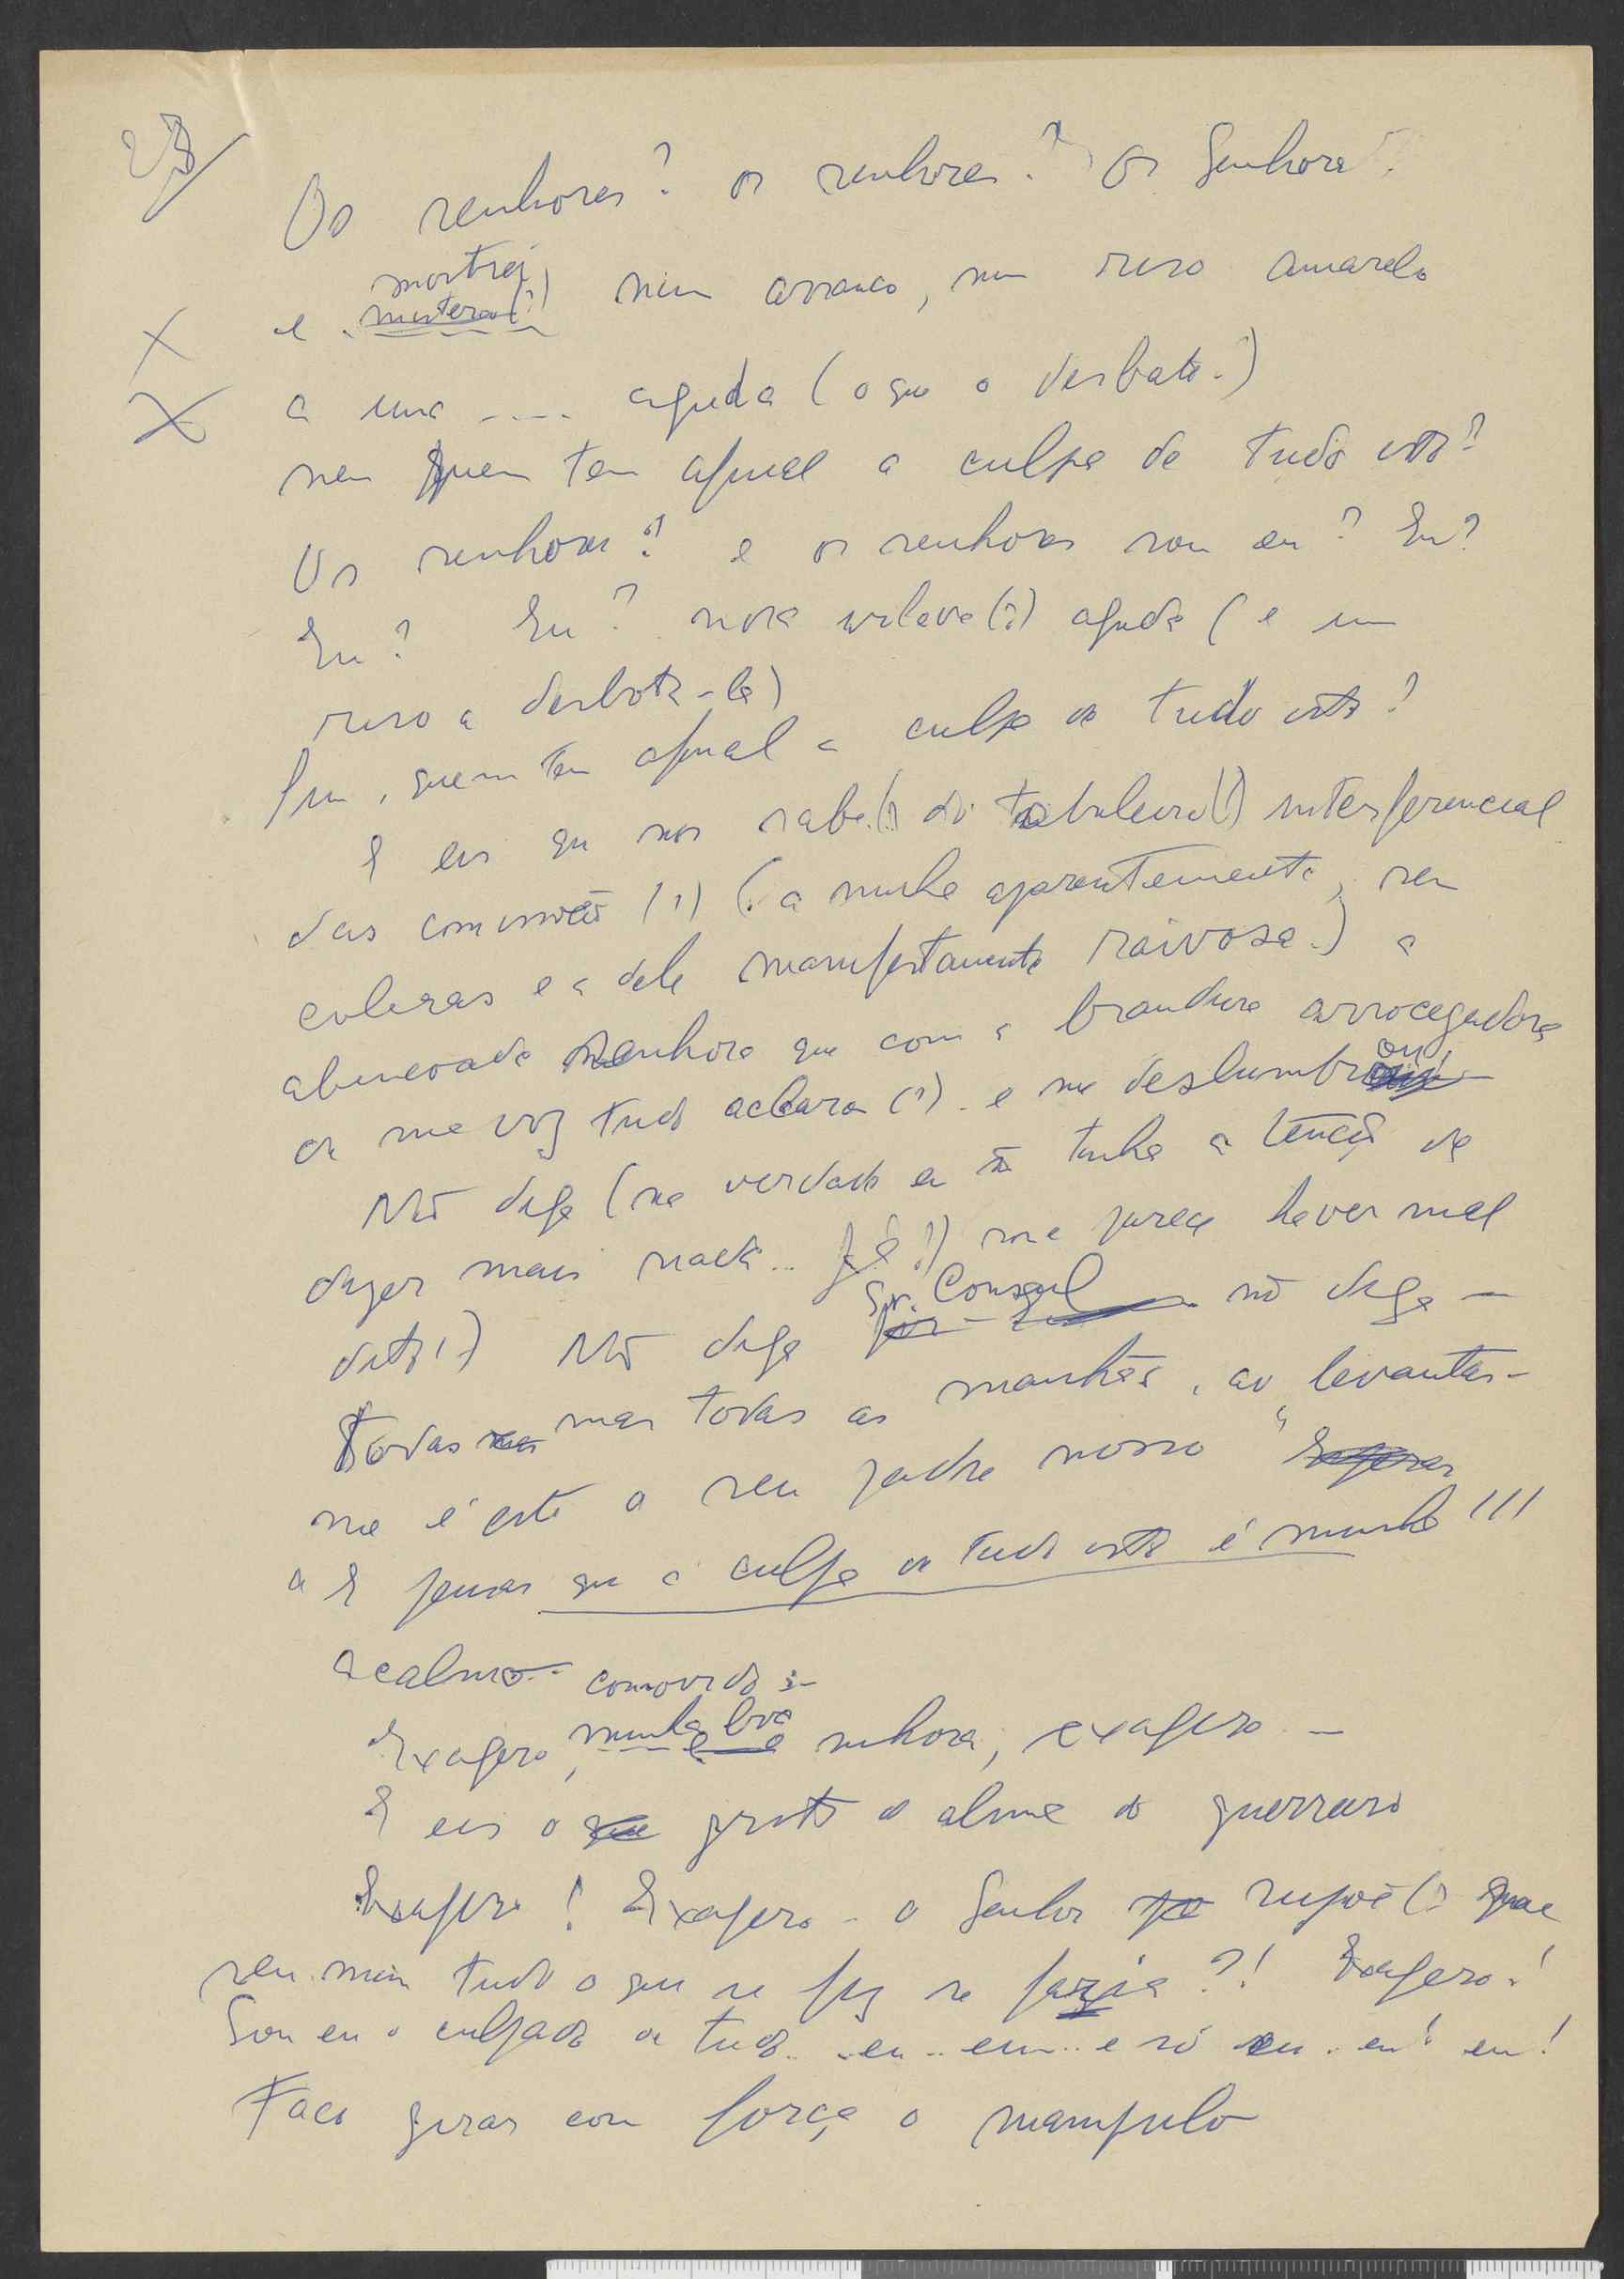 23
Os senhores? os senhores? Os Senhores?
mostrei
e misterea(?) num arranco, num riso amarelo
a uma .... aguda (o que o desbota?)
nem Quem tem afinal a culpa de tudo isto?
Os senhores? e os senhores sou eu? Eu?
Eu? Eu? aguda (e um
riso a desbota-la)
Sim, quem tem afinal a culpa de tudo isto?
E eis que nos sabe(?) do taboleiro(?) interferencial
das comissões (?) (a minha aparentemente, sem
coleras e a dele manifestamente raivosa) a
abnegada senhora que com a brandura arrocegadora
da sua voz tudo aclara (?) e me deslumbrou
Não diga (na verdade eu não tinha a tenção de
dizer mais nada... me parece haver mal
dito!) Não diga Sr. Consul não diga -
Todas mas mas todas as manhãs, ao levantar-
me é este o seu padre nosso "
"E pensar que a culpa de tudo isto é minha!!!
acalmo- comovido :-
Exagero, minha boa senhora, exagero -
E eis o que grito a alma do guerreiro
Exagero! Exagero - o Senhor supõe (? que
sem mim tudo o que se fez se fazia?! Exagero!
Sou eu o culpado de tudo.. eu.. eu.. e só eu.. eu! eu!
Faço girar com força o manipulo